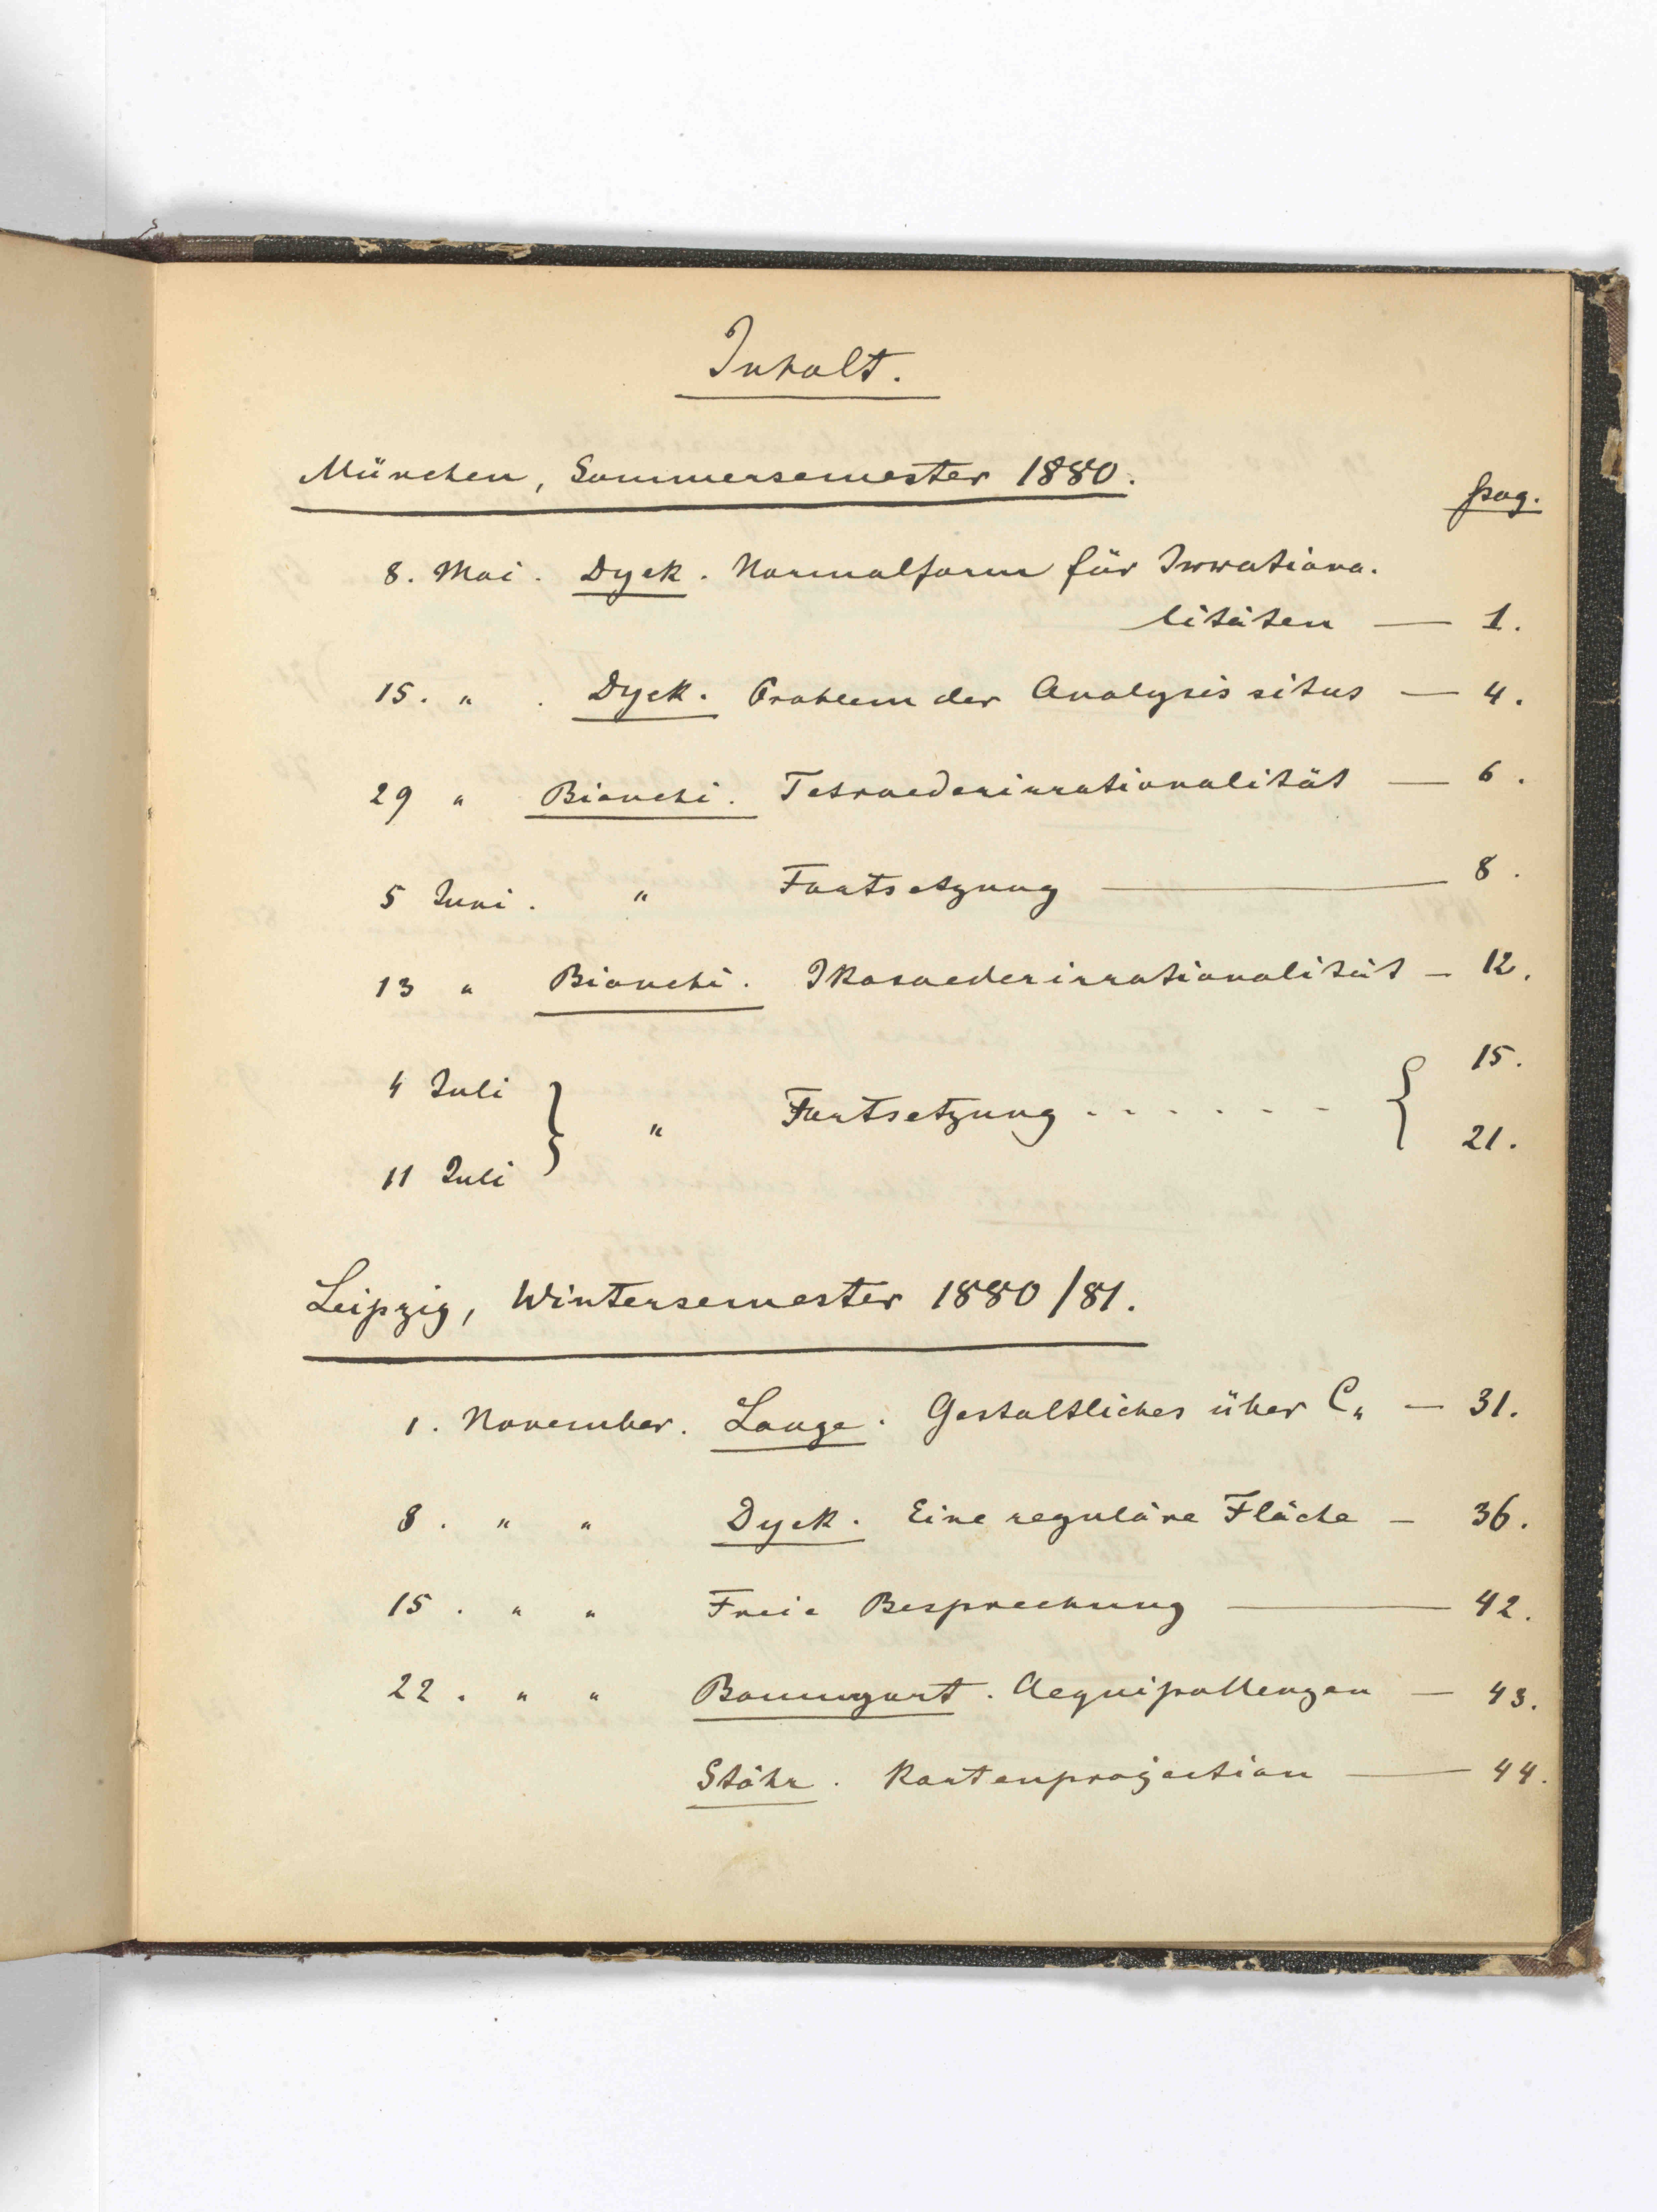 Inhalt.
München, Sommersemester 1880.
pag.
8. Mai. Dyck. Normalform für Irrationa-
litäten — 1.
15. " . Dyck. Problem der Analysis situs — 4.
29 " Bianchi. Tetraederirrationalität — 6.
5 Juni. " Fortsetzung — 8.
13 " Bianchi. Ikosaederirrationalität — 12.
4 Juli 15.
} " Fortsetzung . . . . . . {
11 Juli 21.
Leipzig, Wintersemester 1880/81.
1. November. Lange. Gestaltliches über C₄ — 31.
8. " " Dyck. Eine reguläre Fläche — 36.
15. " " Freie Besprechung — 42.
22. " " Baumgart. Aequipollenzen — 43.
Stöhr. Kartenprojection — 44.